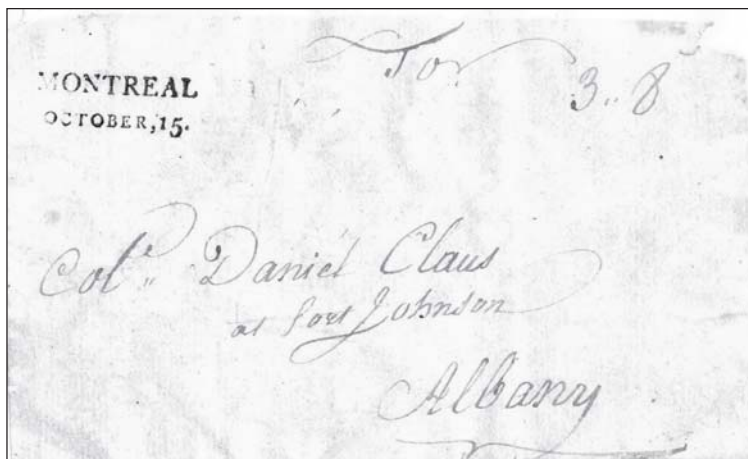 To
3„ 8
MONTREAL
OCTOBER,15.
Col.º„ Daniel Claus
at Fort Johnson
Albany